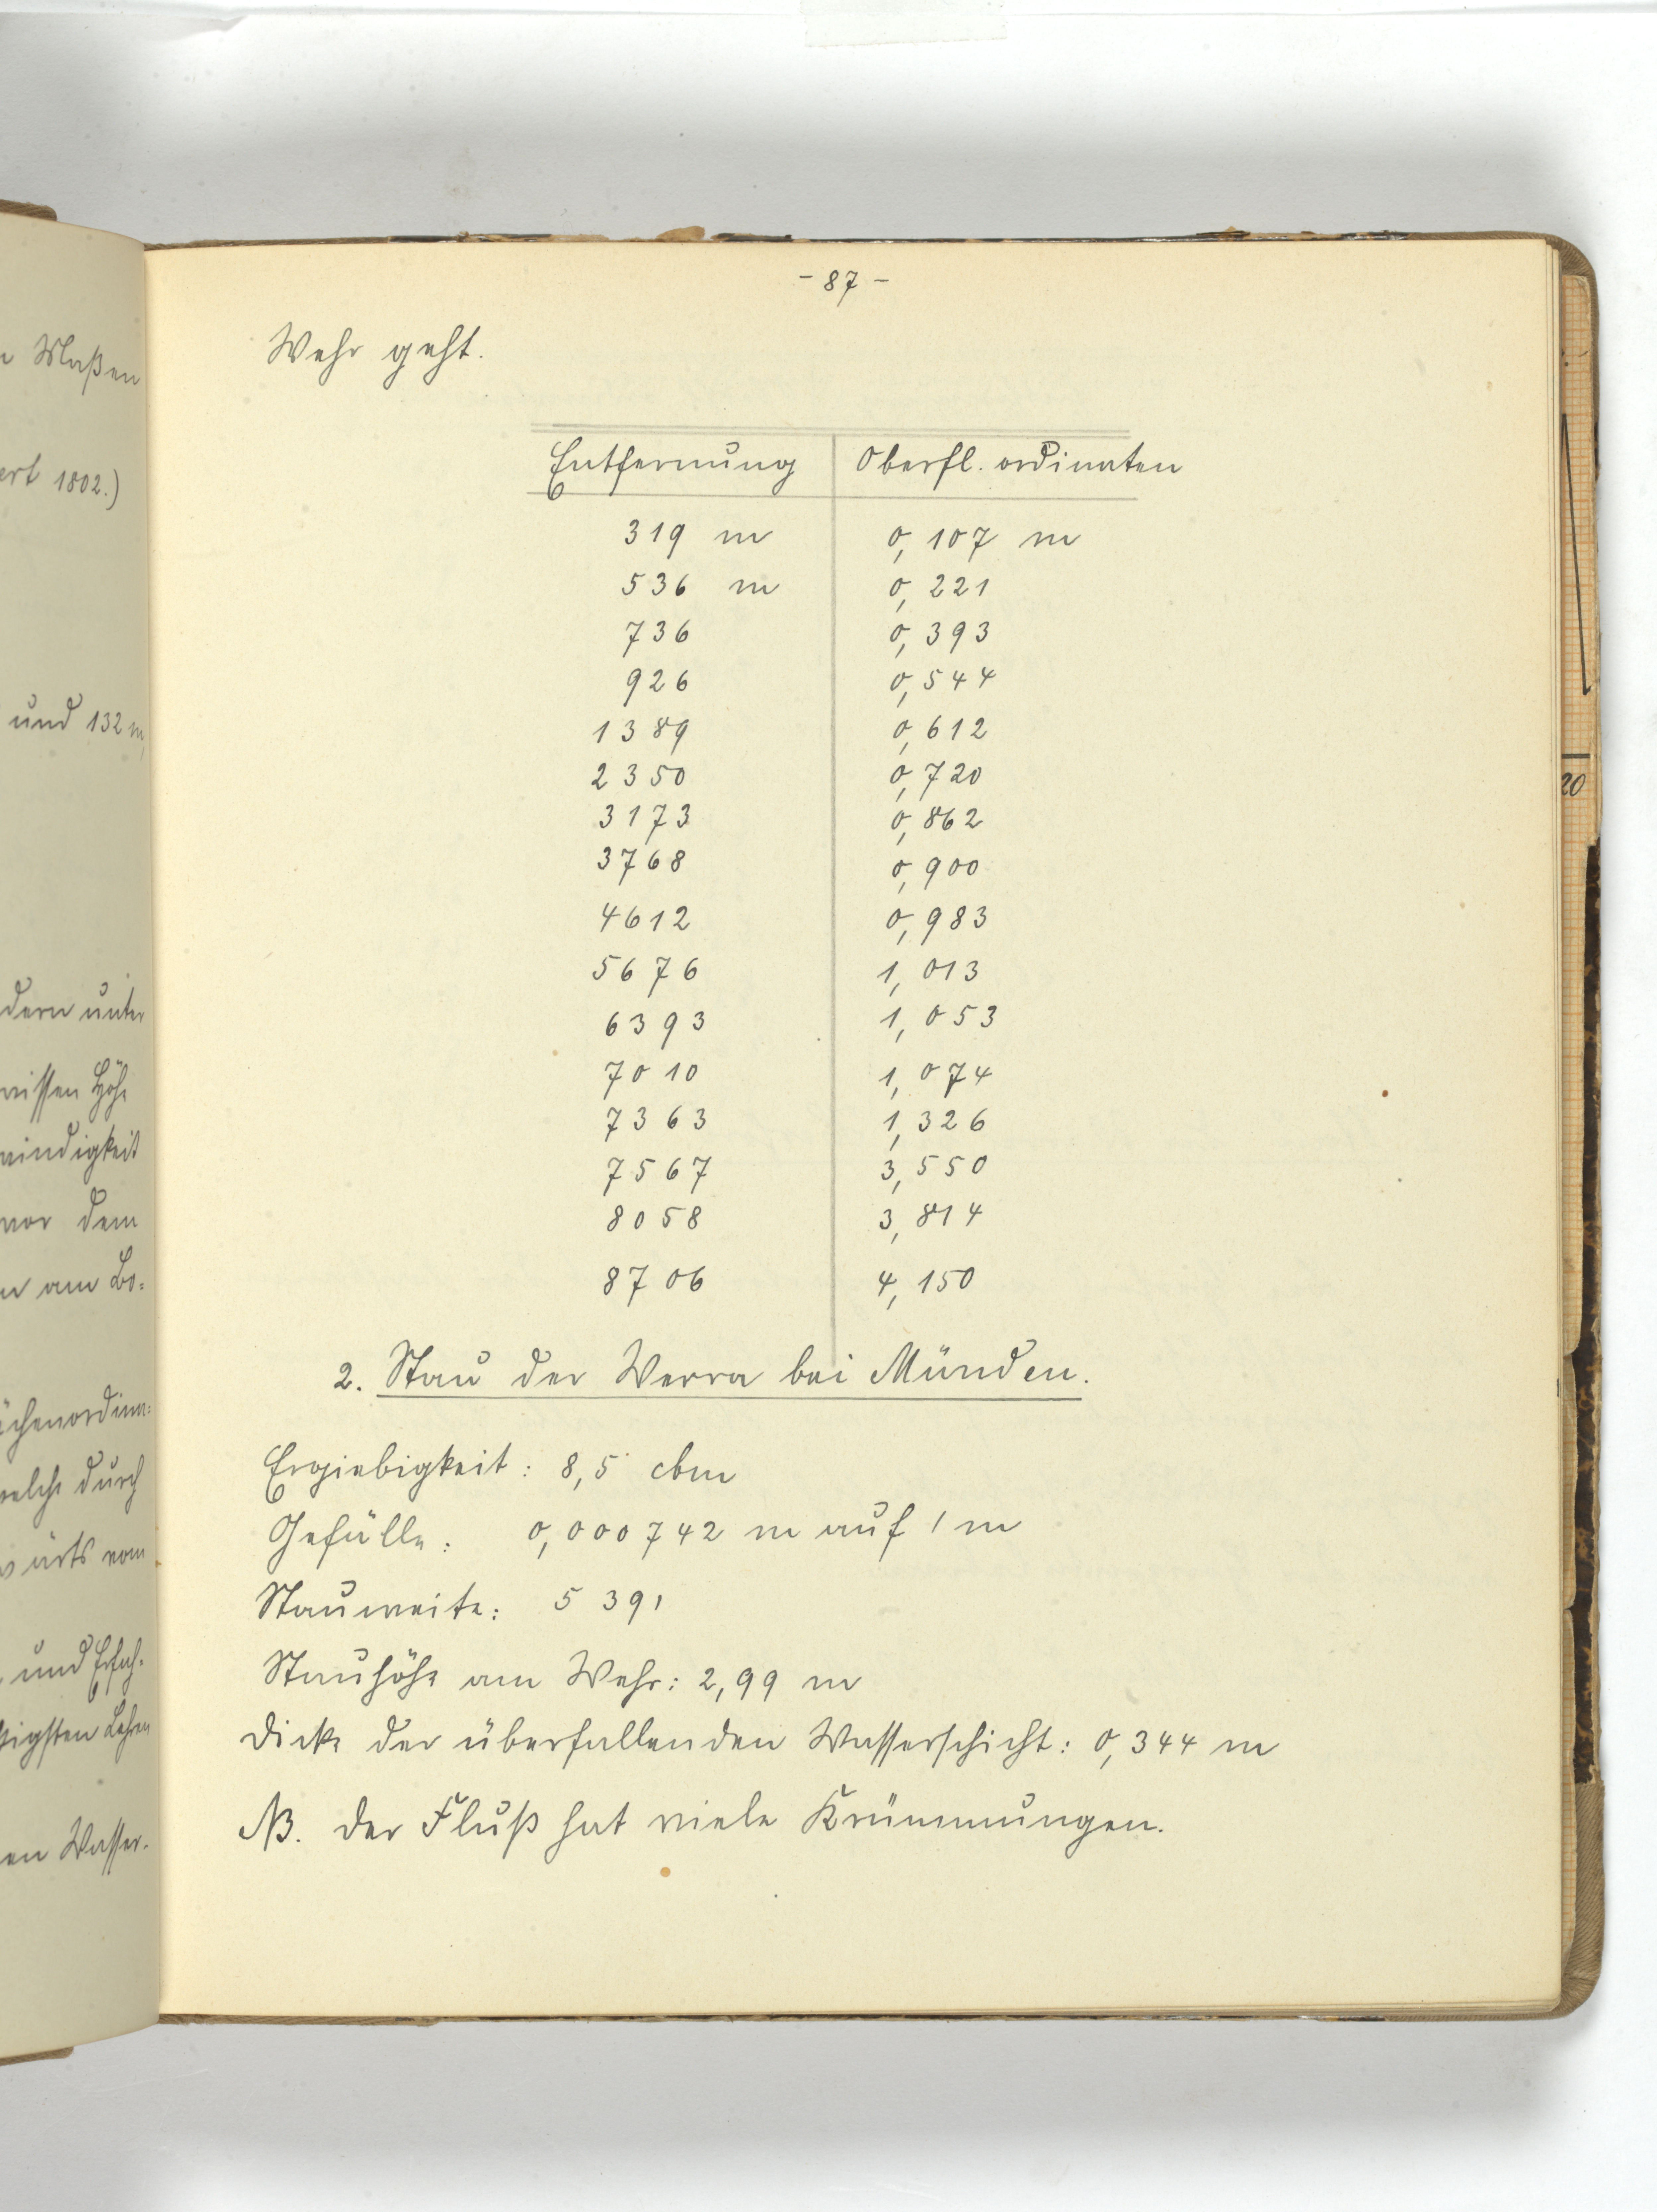 n Maßen
ert 1802.)
und 132 m,
dern unter
wissen Höhe
windigkeit
vor dem
n am Bo=
ächenordina=
welche durch
wärts vom
und Erfah-
tigsten Lehren
en Wasser-
- 87 -
Wehr geht.
Entfernung Oberfl. ordinaten
319 m 0,107 m
536 m 0,221
736 0,393
926 0,544
1389 0,612
2350 0,720
3173 0,862
3768 0,900
4612 0,983
5676 1,013
6393 1,053
7010 1,074
7363 1,326
7567 3,550
8058 3,814
8706 4,150
2. Stau der Werra bei Münden.
Ergiebigkeit: 8,5 cbm
Gefälle: 0,000742 m auf 1 m
Stauweite: 5391
Stauhöhe am Wehr: 2,99 m
Dicke der überfallenden Wasserschicht: 0,344 m
NB. Der Fluß hat viele Krümmungen.
20